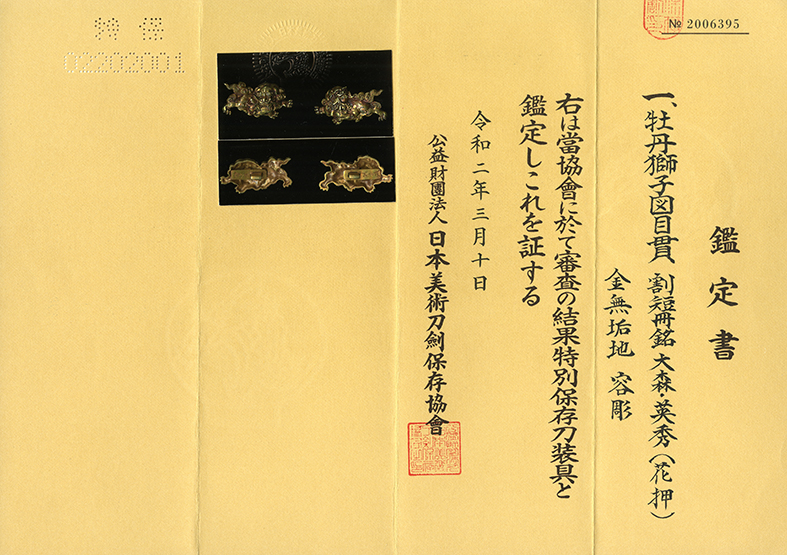 № 2006395
鑑定書
一、牡丹獅子図目貫 割短冊銘 大森・英秀(花押)
金無垢地 容彫
右は當協會に於て審査の結果特別保存刀装具と
鑑定しこれを証する
令和二年三月十日
公益財團法人 日本美術刀劍保存協會
特保
02202001